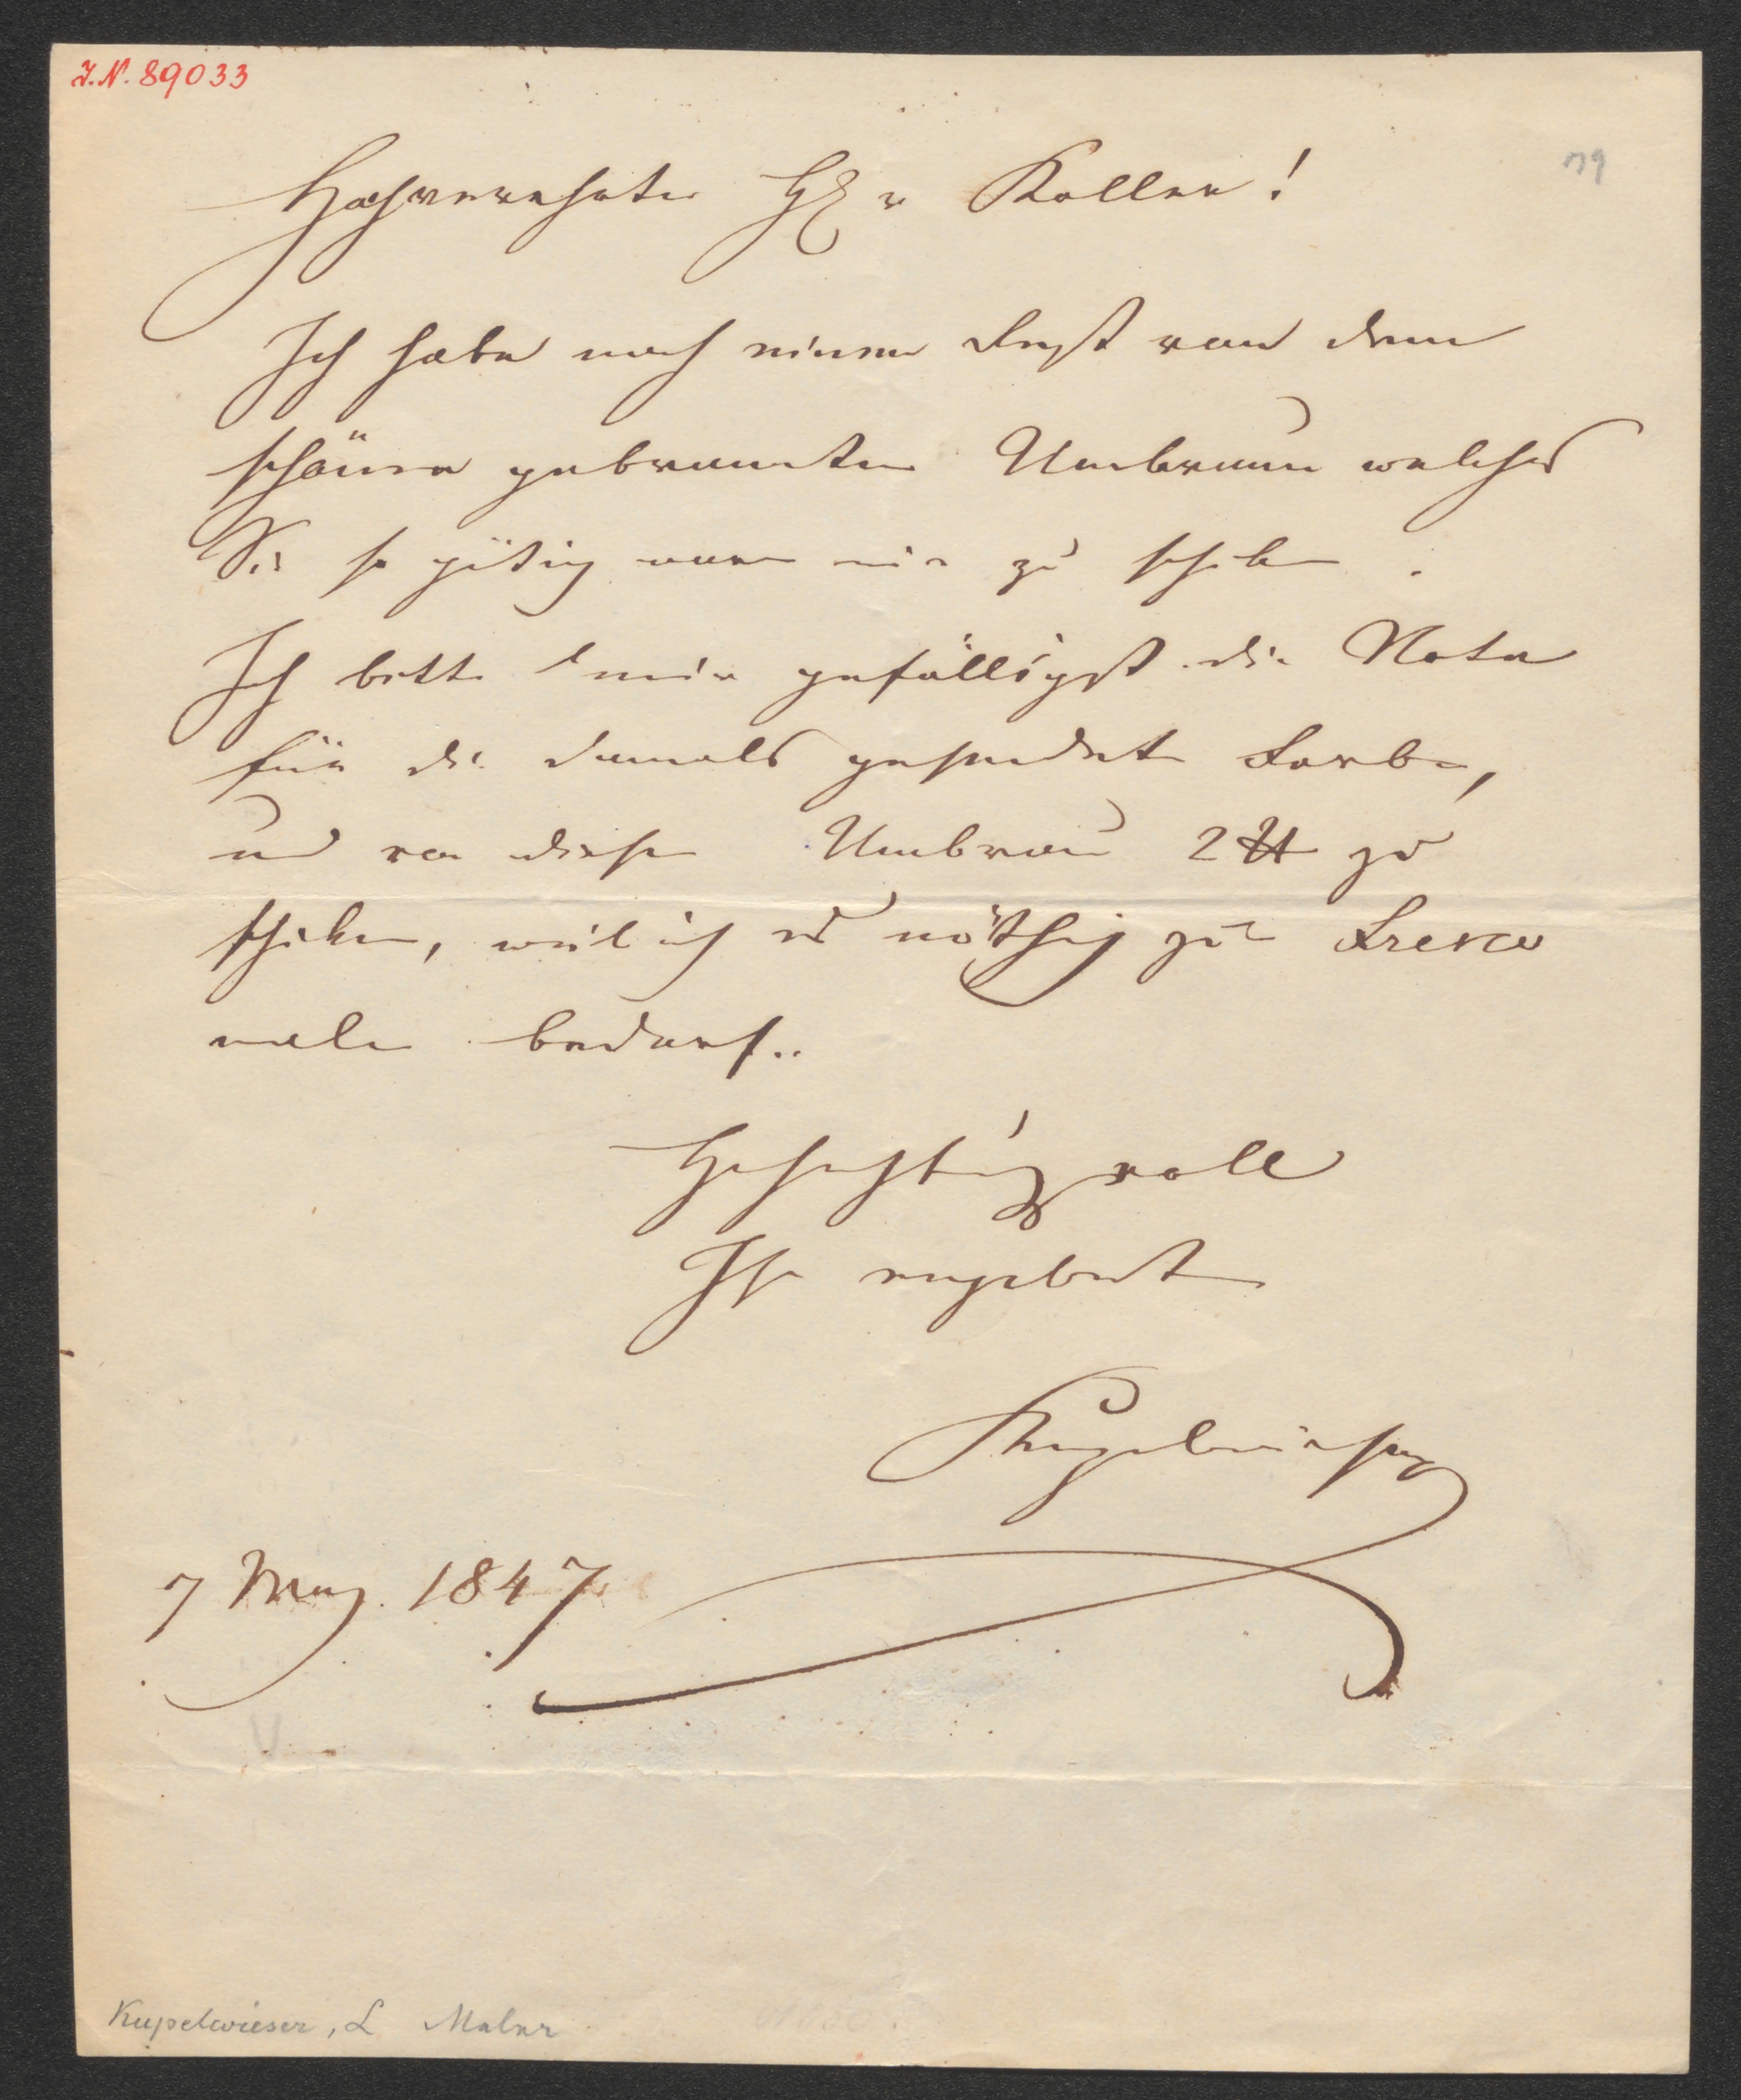 I.N. 89033
79
Hochverehrter H. Koller!
Ich habe noch einen Rest von dem
schönen gebrannten Umbraun welches
Sie so gütig waren mir zu schiken.
Ich bitte mir gefälligst die Nota
für die damals gesendete Farbe,
und von diesem Umbraun 2 ℔ zu
schiken, weil ich es nöthig zu Fresco
malen bedarf..
Hochachtungsvoll
Ihr ergebenster
Kupelwieser
7 May. 1847
Kupelwieser, L Maler